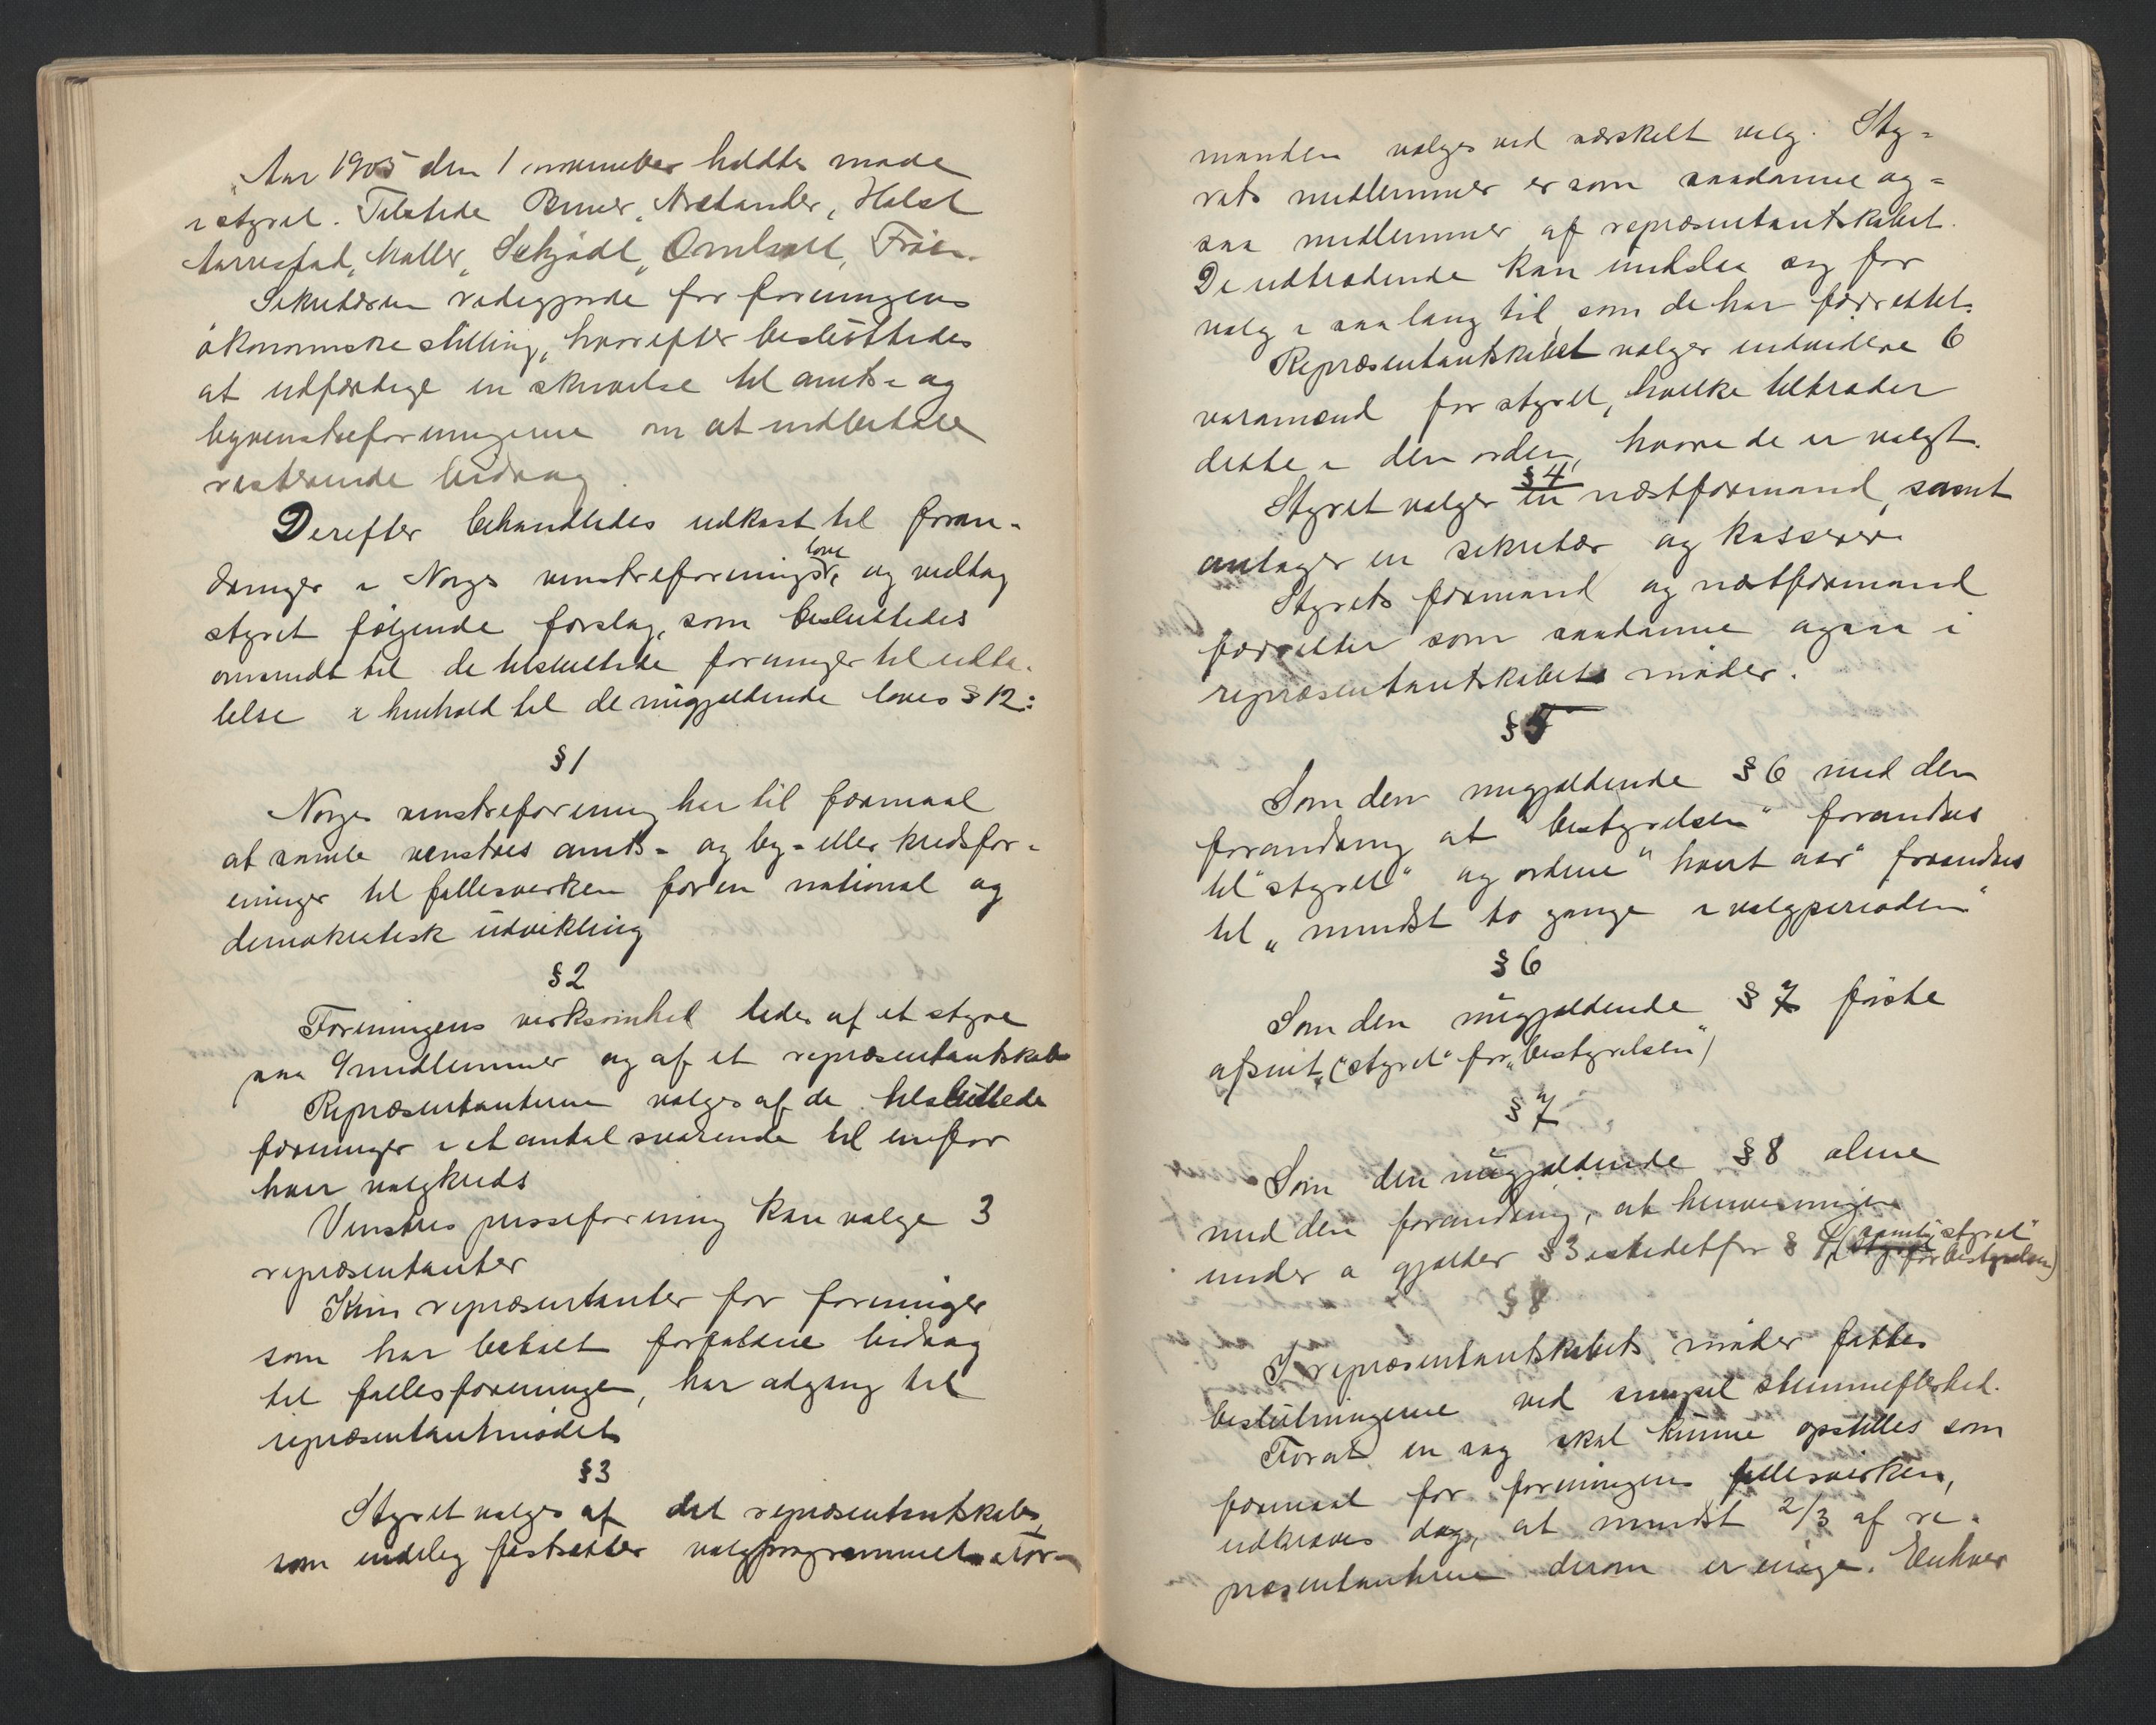 Aar 1905 den 1 november holdtes møde
i styret. Tilstede Berner, Arctander, Holst
Aarrestad, Møller, Schjødt, Omholt, Frøis.
Sekretæren redegjorde for foreningens
økonomiske stilling, hvorefter besluttedes
at udfærdige en skrivelse til amts- og
byvenstreforeningerne om at indbetale
resterende bidrag.
Derefter behandledes udkast til foran-
dringer i Norges venstreforenings love, og vedtog
styret følgende forslag, som besluttedes
omsendt til de tilsluttede foreninger til udta-
lelse i henhold til de nugjældende loves § 12:
§ 1
Norges venstreforening har til formaal
at samle venstres amts- og by- eller kredsfor-
eninger til fællesvirken for en national og
demokratisk udvikling
§ 2
Foreningens virksomhed ledes af et styre
paa 9 medlemmer og af et repræsentantskab
Repræsentanterne vælges af de tilsluttede
foreninger i et antal svarende til en for
hver valgkreds
Venstres presseforening kan vælge 3
repræsentanter
Kun repræsentanter for foreninger
som har betalt forfaldne bidrag
til fællesforeningen, har adgang til
repræsentantmødet
§ 3
Styret vælges af det repræsentantskab,
som endelig fastsætter valgprogrammet. For-
manden vælges ved særskilt valg. Sty-
rets medlemmer er som saadanne og-
saa medlemmer af repræsentantskabet.
De udtrædende kan undslaa sig for
valg i saa lang tid, som de har forrettet.
Repræsentantskabet vælger endvidere 6
varamænd for styret, hvilke tiltræder
dette i den orden, hvori de er valgt.
§ 4
Styret vælger en næstformand, samt
antager en sekretær og kasserer.
Styrets formand og næstformand
forretter som saadanne ogsaa i
repræsentantskabets møder.
§ 5
Som den nugjældende § 6 med den
forandring at "bestyrelsen" forandres
til "styret" og ordene "hvert aar" forandres
til "mindst to gange i valgperioden"
§ 6
Som den nugjældende § 7 første
afsnit, ("styret" for "bestyrelsen")
§ 7
Som den nugjældende § 8 alene
med den forandring, at henvisningen
under a gjælder § 3 istedetfor § 4 (samt "styret"
for bestyrelsen)
§ 8
I repræsentantskabets møder fattes
beslutningerne ved simpel stemmeflerhed.
Forat en sag skal kunne opstilles som
formaal for foreningens fællesvirken,
udkræves dog, at mindst 2/3 af re-
præsentanterne derom er enige. Enhver